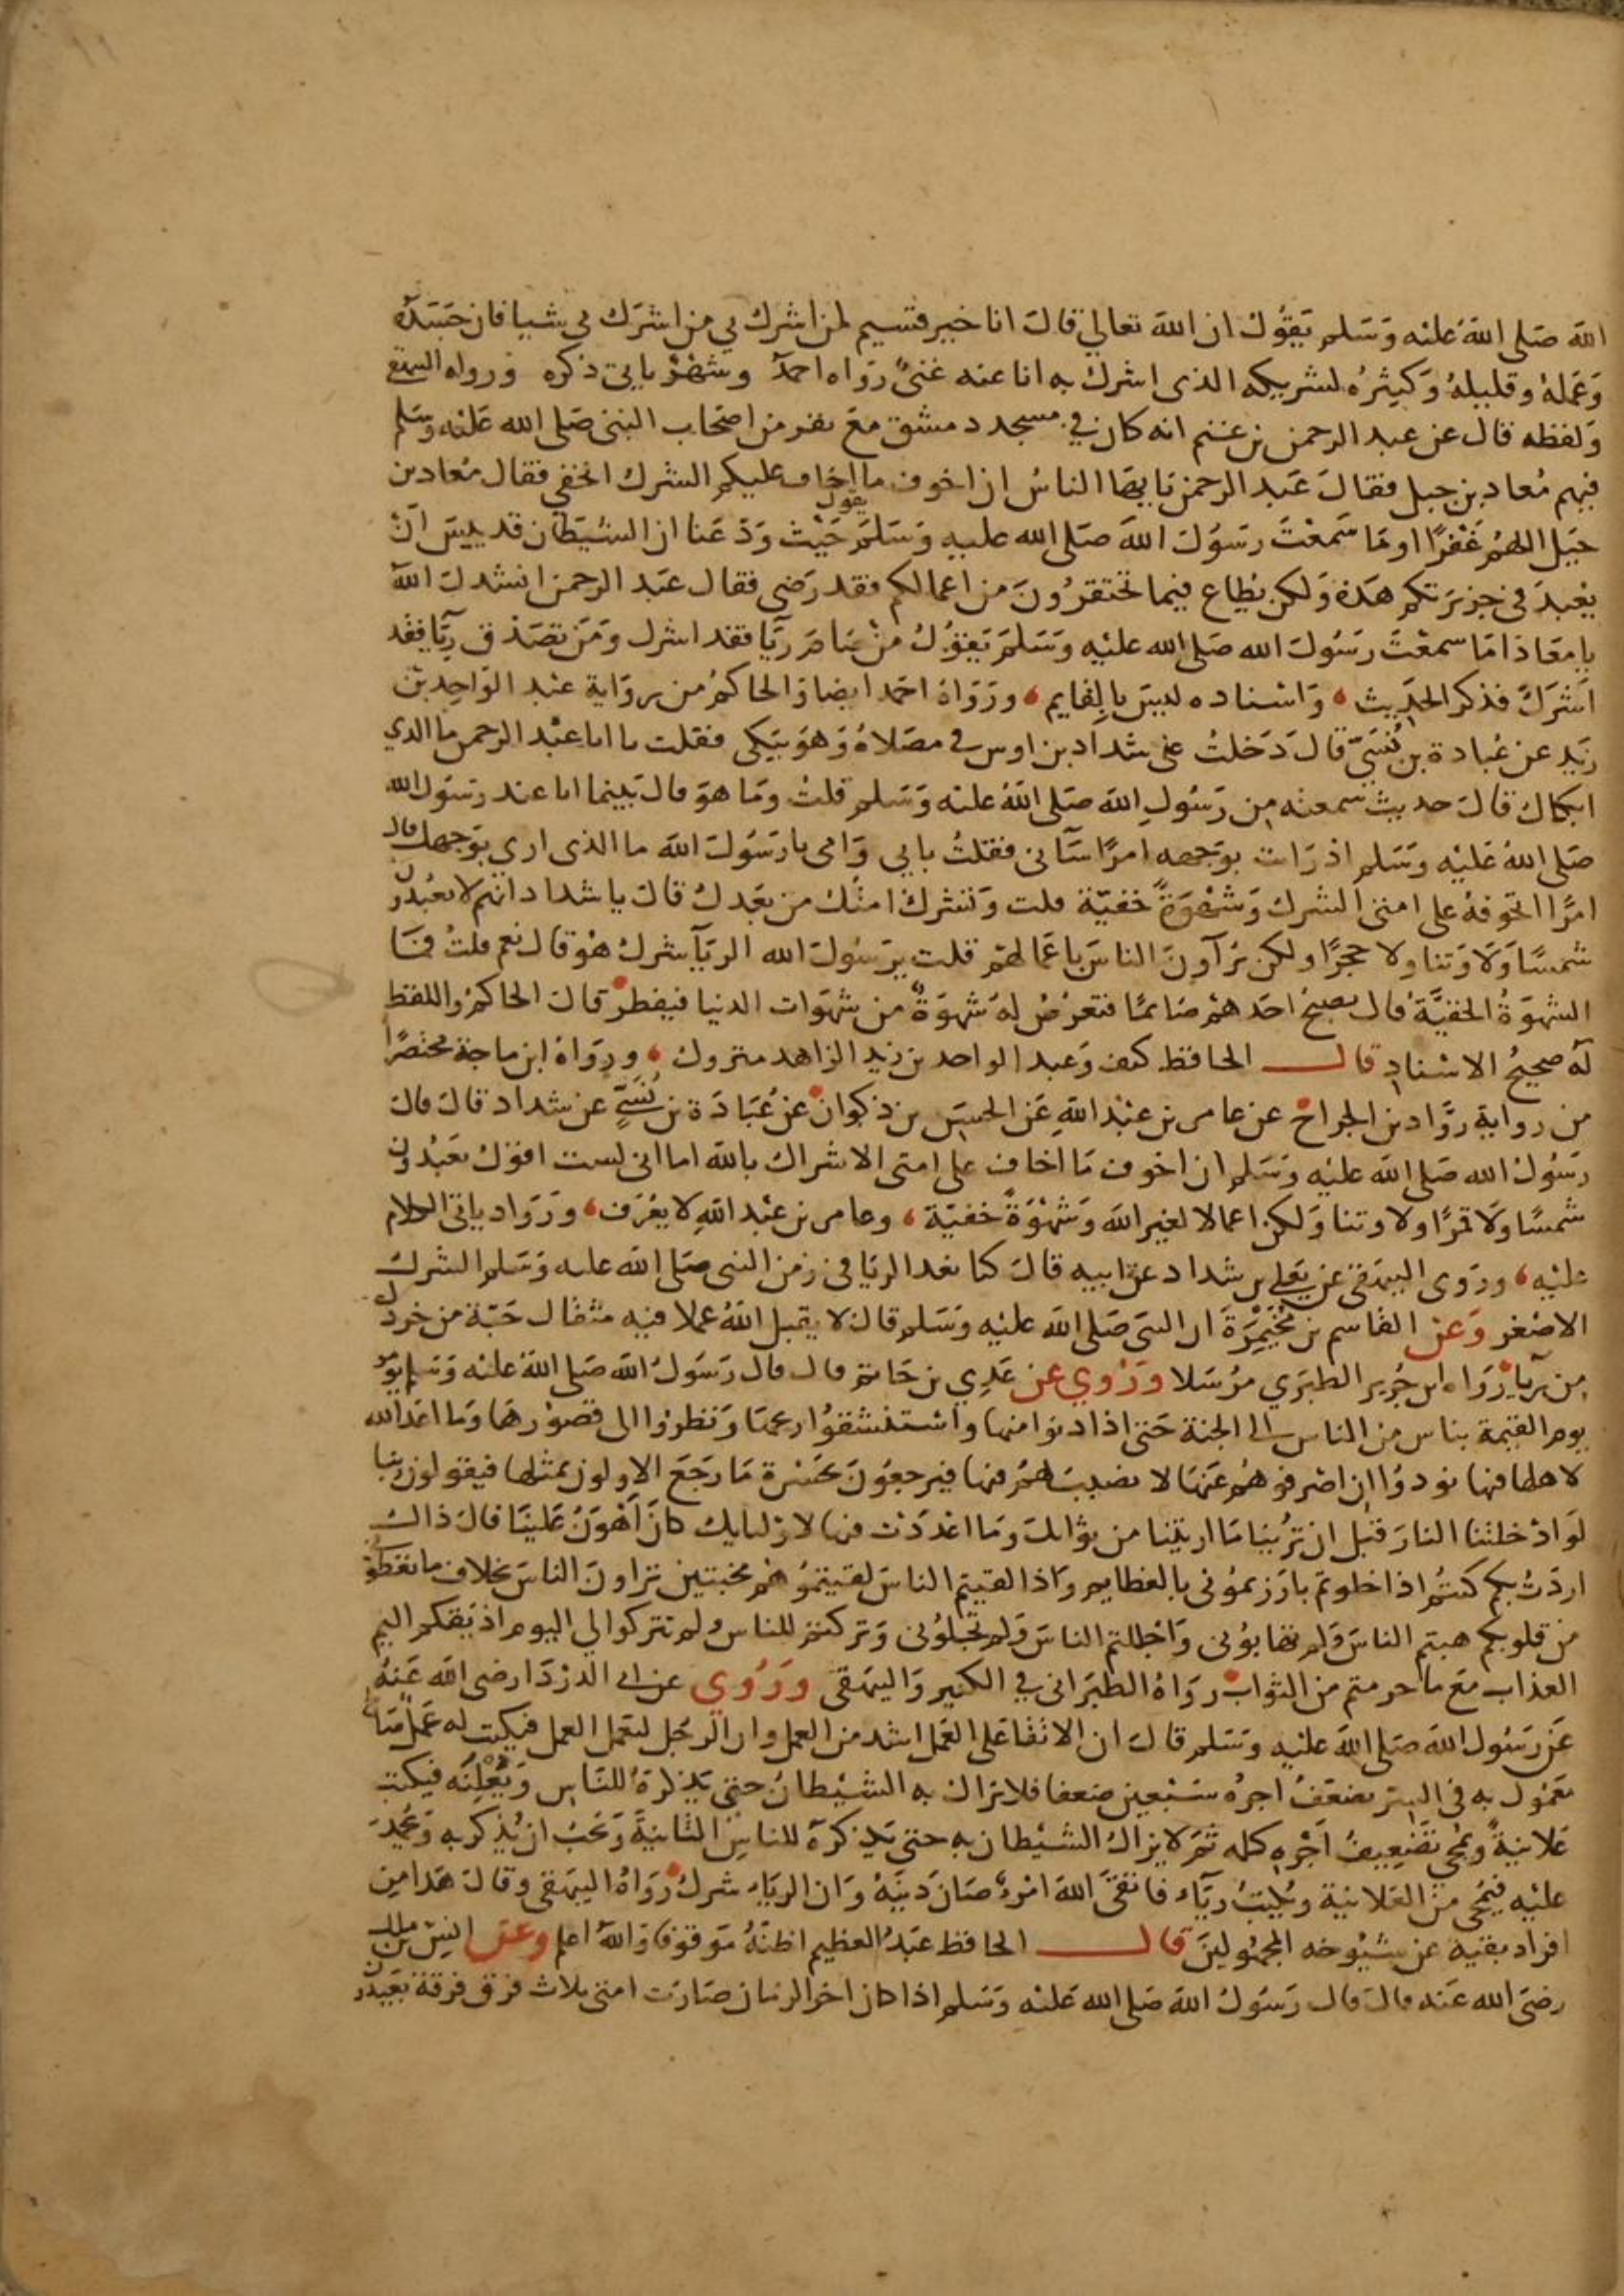 الله صَلى الله عَليْه وَسَلم يَقوُل ان الله تعالي قال انا خير قسيم لمن اشرك بي من اشرَك بي شيا فان جَسَدَهُ
وَعَملهُ وقليلهُ وَكثيرُه لشريكه الذى اشرك به انا عنه غنىٌّ رَوَاه احمدُ وشهْرٌ ياتى ذكره ورواه البيهقي
وَلفظه قال عن عبد الرحمن بن غنم انه كان في مسجد دمشق مَعَ نفر من اصْحَاب النبى صَلى الله عَليْه وسَلم
فيهم مُعاد بن جبل فقالَ عَبد الرحمن يا ايهَا الناسُ ان اخوف ما اخاف عليكم الشرك الخفي فقال مُعاد بن
جَبَل اللهُمَّ غَفْرًا اومَا سَمعْتَ رسُولَ الله صَلى الله عليه وَسَلمَ يقول حَيْث وَدَّعَنا ان الشيْطان قد يَيِسَ اَنْ
يُعْبدَ في جزيرَتكم هَذه وَلكن يُطاع فيما تحتقرُونَ من اعمالكم فقد رَضى فقال عبْد الرحمن انشدك الله
يا مُعَاذ امَا سمعْتَ رسُولَ الله صَلى الله عليْه وَسَلمَ يَقوُلُ مَنْ صَامَ رِيَّا فقد اشرك وَمَنْ تصَدق رِيَّا فقد
اَشرَكَ فذكر الحَدِيث ، وَاسْناده ليسَ بالِقايم ، ورَوَاهُ احمَد ايضا وَالحاكمُ من روَاية عبْد الوَاحِد بْن
زيَد عن عُبادة بن نُسَيّ قالَ دَخلتُ عَلى شداد بن اوس في مصَلاهُ وَهوَ يَبكى فقلت يا ابا عبْد الرحمن ما الذي
ابكاك قالَ حديث سمعته مِن رَسُولِ الله صَلى الله عليْه وَسَلم قلتُ وَمَا هوَ قالَ بَينما انا عند رسَوُل الله
صَلى الله عَليْه وسَلم اذ رَايت بوَجهه امرًا سَآنى فقلتُ بابي وَامى يا رَسُولَ الله ما الذى اري بوَجهك قال
امرًا اتخوفهُ على امتى الشرك وَشَهْوَةً خَفيّة قلت وَتشرك امتُك من بَعْدك قالَ يا شداد انهم لا يَعْبُدُون
شمسًا وَلَا وَثنا ولا حجرًا ولكن يُرآونَ الناسَ باعْمَالهم قلت يرَسُولَ الله الريآ شرك هُوَ قال نعم قلتُ فمَا
الشهوَةُ الخفيَّةُ قال يُصبحُ احَدهمْ صَائمًا فتعرُضُ لهُ شهوَةٌ من شهَوات الدنيا فيفطرُ قال الحاكمُ واللفظ
لهُ صحيحُ الاسْنادِ قالــ الحافظ كيف وَعبد الواحد بن زيد الزاهد متروك ، ورَوَاهُ ابن ماجة مختصَرًا
من رواية رَوَّاد بن الجراح عن عامر بن عبْد اللهِ عَن الحسَن بن ذكوان عن عُبَادَة بن نُسَيٍّ عن شداد قال قال
رَسُولُ الله صَلى الله عليْه وَسَلم ان اخوف مَا اخاف على امتى الاشراك بالله اما انى لست اقوُل يَعبُدُون
شمسًا وَلَا قمرًا ولا وثنا وَلكن اعمالا لغير الله وَشَهْوَةً خفيّة ، وعامر بن عبْد اللهِ لا يُعْرَف ، وَرَوَّاد ياتى الكلام
عليْه ، ورَوى البيهَقى عن يَعلى بن شداد عن ابيه قالَ كنا نعد الريَا فى زمن النبى صَلى الله عليه وَسَلم الشرك
الاصْغر وَعن القاسم بن مُخَيْمِرَةَ ان النبى صَلى الله عليْه وَسَلم قال لا يقبل اللهُ عملا فيه مثقال حَبّة من خردل
مِن رِيآ رَوَاه ابن جُرير الطبَري مرُسَلا ورُوي عن عَدِي بن حَاتم قال قال رَسُولُ الله صَلى الله عليْه وَسَلم يؤمَر
يوم القيمة بناس من الناس الى الجنة حَتى اذا دنوا منها واسْتنشقوُا ريحهَا وَنظروا الى قصوْرهَا وَما اعَد الله
لاهلها فيها نودوُا ان اصْرفوهُمْ عَنهَا لا نصيبَ لهُمْ فيها فيرجعوُنَ بحَسْرة مَا رَجَعَ الاولون بمثلها فيقولون رَبنا
لَوْ ادْخلتنا النارَ قبْل ان تُرينا مَا اريْتنا من ثوَابكَ وَمَا اعْدَدْت فيها لاوْليايك كانَ اَهْوَنَ عَليْنَا قال ذاك
اردتُ بكم كنتُم اذا خلوتم بارزتموُنى بالعظايم وَاذا لقيتم الناسَ لقيتموُهُمْ مخبتين تراونَ الناسَ بخلاف ما تعْطوُ
من قلوبكم هبتم الناسَ وَلم تهابوُنى وَاجْللتم الناسَ وَلم تُجلوُنى وَتركتم للناس ولم تتركوا لي اليوم اذيقكم اليم
العذاب مَعَ ما حرمتم من الثواب رَوَاهُ الطبَرَانى في الكبير وَالبيهَقى وَرُوي عن ابى الدرْدَا رضى الله عَنهُ
عَن رَسُول الله صَلى الله عليْه وسَلم قالَ ان الاتقا عَلى العمَل اشد من العمل وان الرجُل ليَعْمل العمل فيكتب له عَمَل صَالح
مَعْمُول به فى السِّر يضعَّفُ اجرُه سَبْعين ضعفا فلا يزال به الشيْطانُ حتى يَذكرهُ للنَّاسِ وَيُعْلِنُه فيكتب
عَلانيةً ويُمحى تضْعِيفُ اَجْرِه كله ثم لا يزالُ الشيْطان به حتى يَذكرهُ للناسِ الثانيَةَ وَيحُبُ ان يُذكر به وَيُحمَدَ
عليْه فيُمْحَى مِنَ العَلانية ويُكتبُ رِيَّاءً فاتقى اللهَ امْرؤٌ صَانَ دينَهُ وَان الريَاءَ شركٌ رَوَاهُ البيهَقى وقالَ هَذا مِن
افراد بقيه عن شيُوخه المجهُولينَ قالــ الحافظ عَبْدُ العظيم اظنهُ مَوقوفا وَاللهُ اعلم وعن انس بن مالك
رضىَ الله عَنه قالَ قال رَسَوُل الله صَلى الله عَليْه وَسَلم اذا كان اخر الزمان صَارَت امتى ثلاث فرق فرقة يَعْبدُون